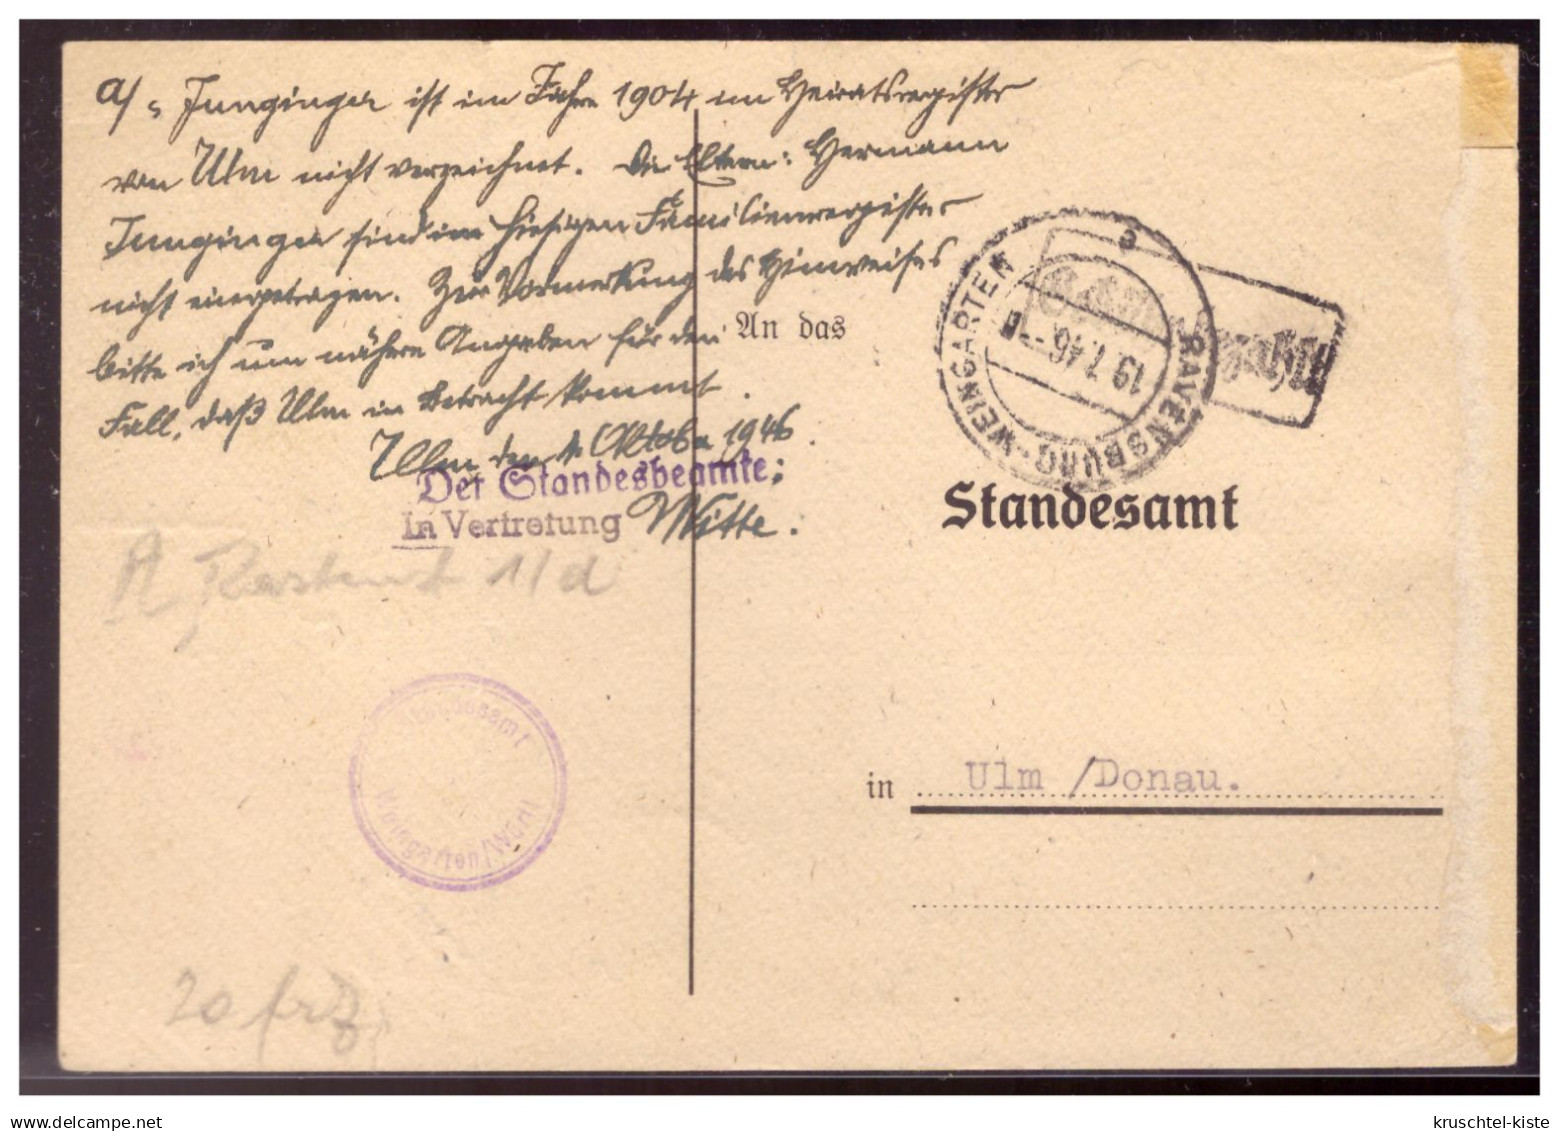 a/ Junginger ist im Jahre 1904 im Heiratsregister
von Ulm nicht verzeichnet. Die Eltern: Hermann
Junginger sind im hiesigen Familienregister
nicht eingetragen. Zur Vormerkung des Hinweises
bitte ich um nähere Angaben für den
Fall, daß Ulm in Betracht kommt.
Ulm den 1. Oktober 1946.
Der Standesbeamte:
In Vertretung Witte.
1/d
Standesamt
Weingarten/Württ
20 frz
An das
RAVENSBURG-WEINGARTEN
a
19.7.46
bezahlt
Standesamt
in Ulm /Donau.
www.delcampe.net
kruschtel-kiste